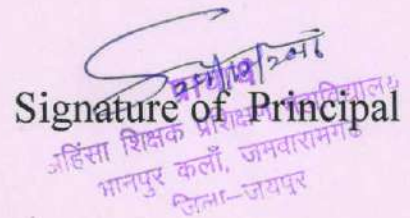 प्राचार्य
Signature of Principal
अहिंसा शिक्षक प्रशिक्षण महाविद्यालय
भानपुर कलाँ, जमवारामगढ़
जिला-जयपुर